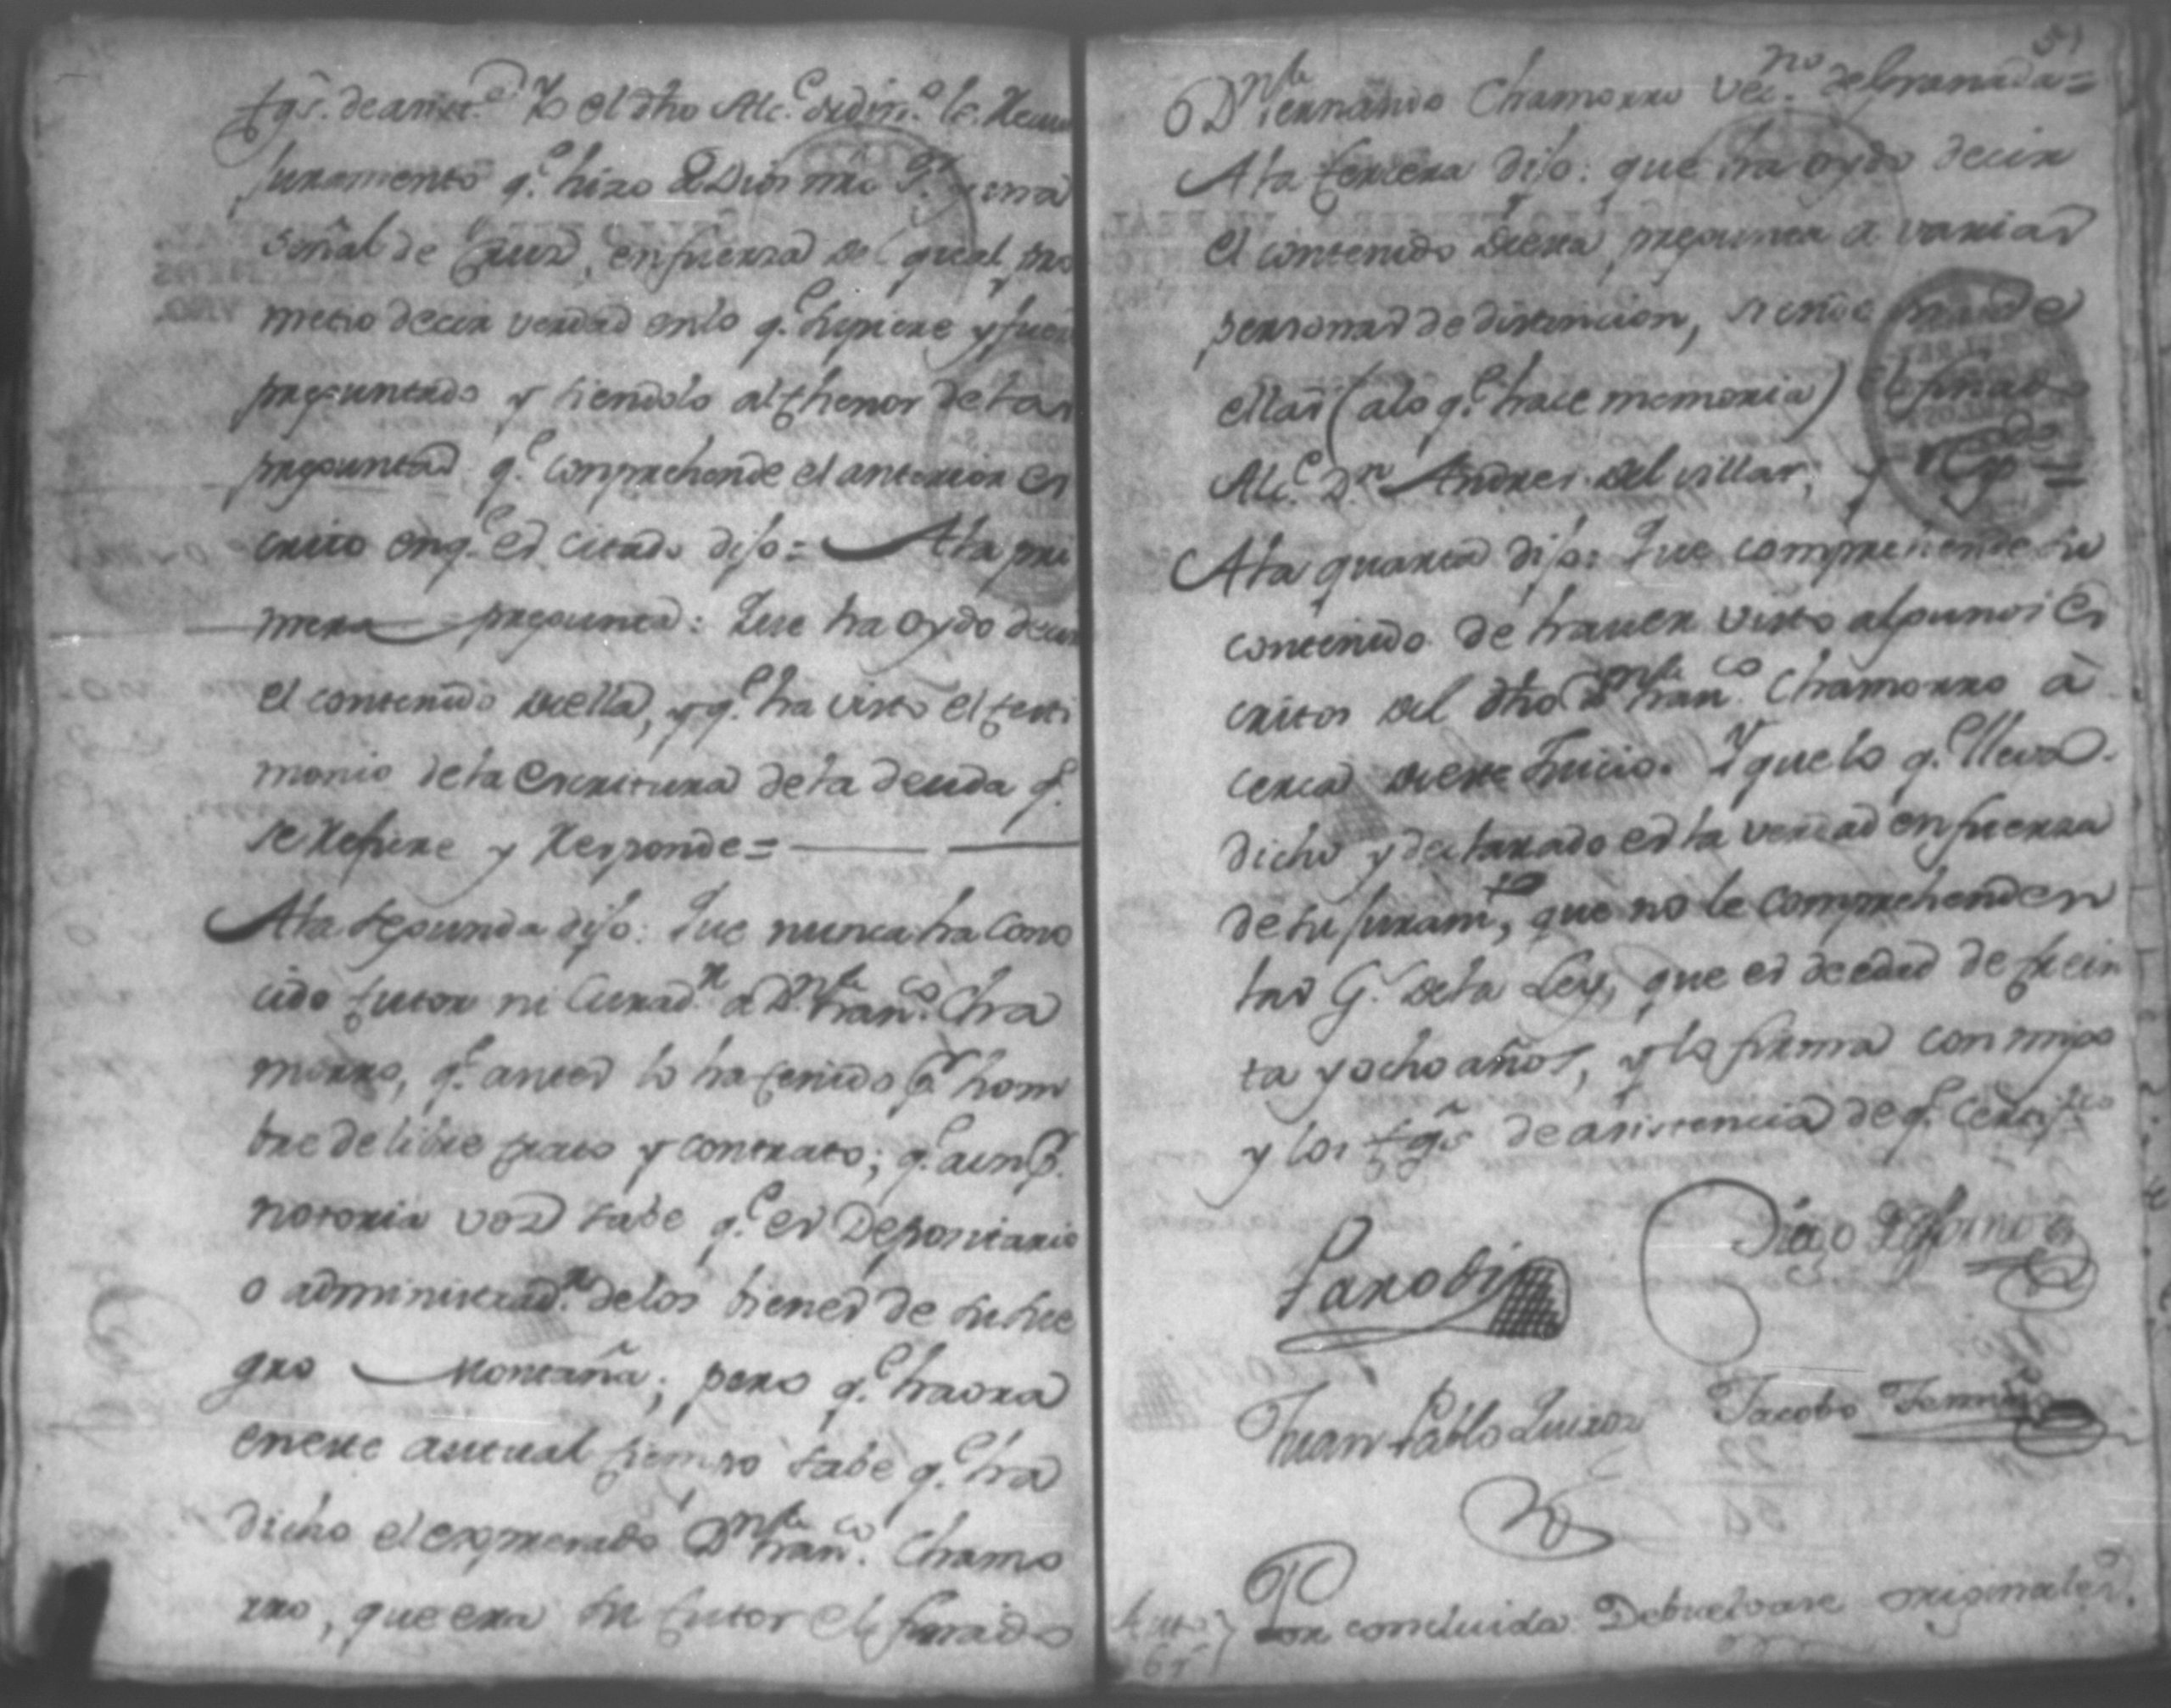 tgs. de asist.ª Yo el dho Alc.e ordin.º le Reciví
juramento q.e hizo a Dios nro S.r y una
señal de Cruz, en fuerza del qual pro
metio decir verdad en lo q.e supiere y fuere
preguntado y siendolo al thenor de las
preguntas q.e comprehende el anterior es
crito en q.e es citado dijo = A la pri
mera pregunta: Que ha oydo decir
el contenido de ella, y q.e ha visto el testi
monio de la escritura de la deuda q.e
se refiere y Responde =
A la segunda dijo: Que nunca ha cono
cido tutor ni Curad.r a D.n Fran.co Cha
morro, q.e antes lo ha tenido p.r hom
bre de libre trato y contrato; q.e aun p.r
notoria voz sabe q.e es Depositario
o administrad.r de los bienes de su sue
gro Montaña; pero q.e haora
en este actual tiempo sabe q.e ha
dicho el expresado D.n Fran.co Chamo
rro, que era su tutor el finado
51
D.n Fernando Chamorro vec.no de Granada =
A la tercera dijo: que ha oydo decir
el contenido de esta pregunta a varias
personas de distincion, siendo una de
ellas (a lo q.e hace memoria) el finado
Alc.e D.n Andres del Villar; y resp.de =
A la quarta dijo: Que comprehende su
contenido de haver visto algunos es
critos del dho D.n Fran.co Chamorro à
cerca de este Juicio. Y que lo q.e lleva
dicho y declarado es la verdad en fuerza
de su juram.to, que no le comprehenden
las G.s de la Ley, que es de edad de trein
ta y ocho años, y lo firma conmigo
y los tg.s de asistencia de q.e certifico
Diego
Juan Pablo Quiroz Jacobo
Por concluida Debuelvase originales.